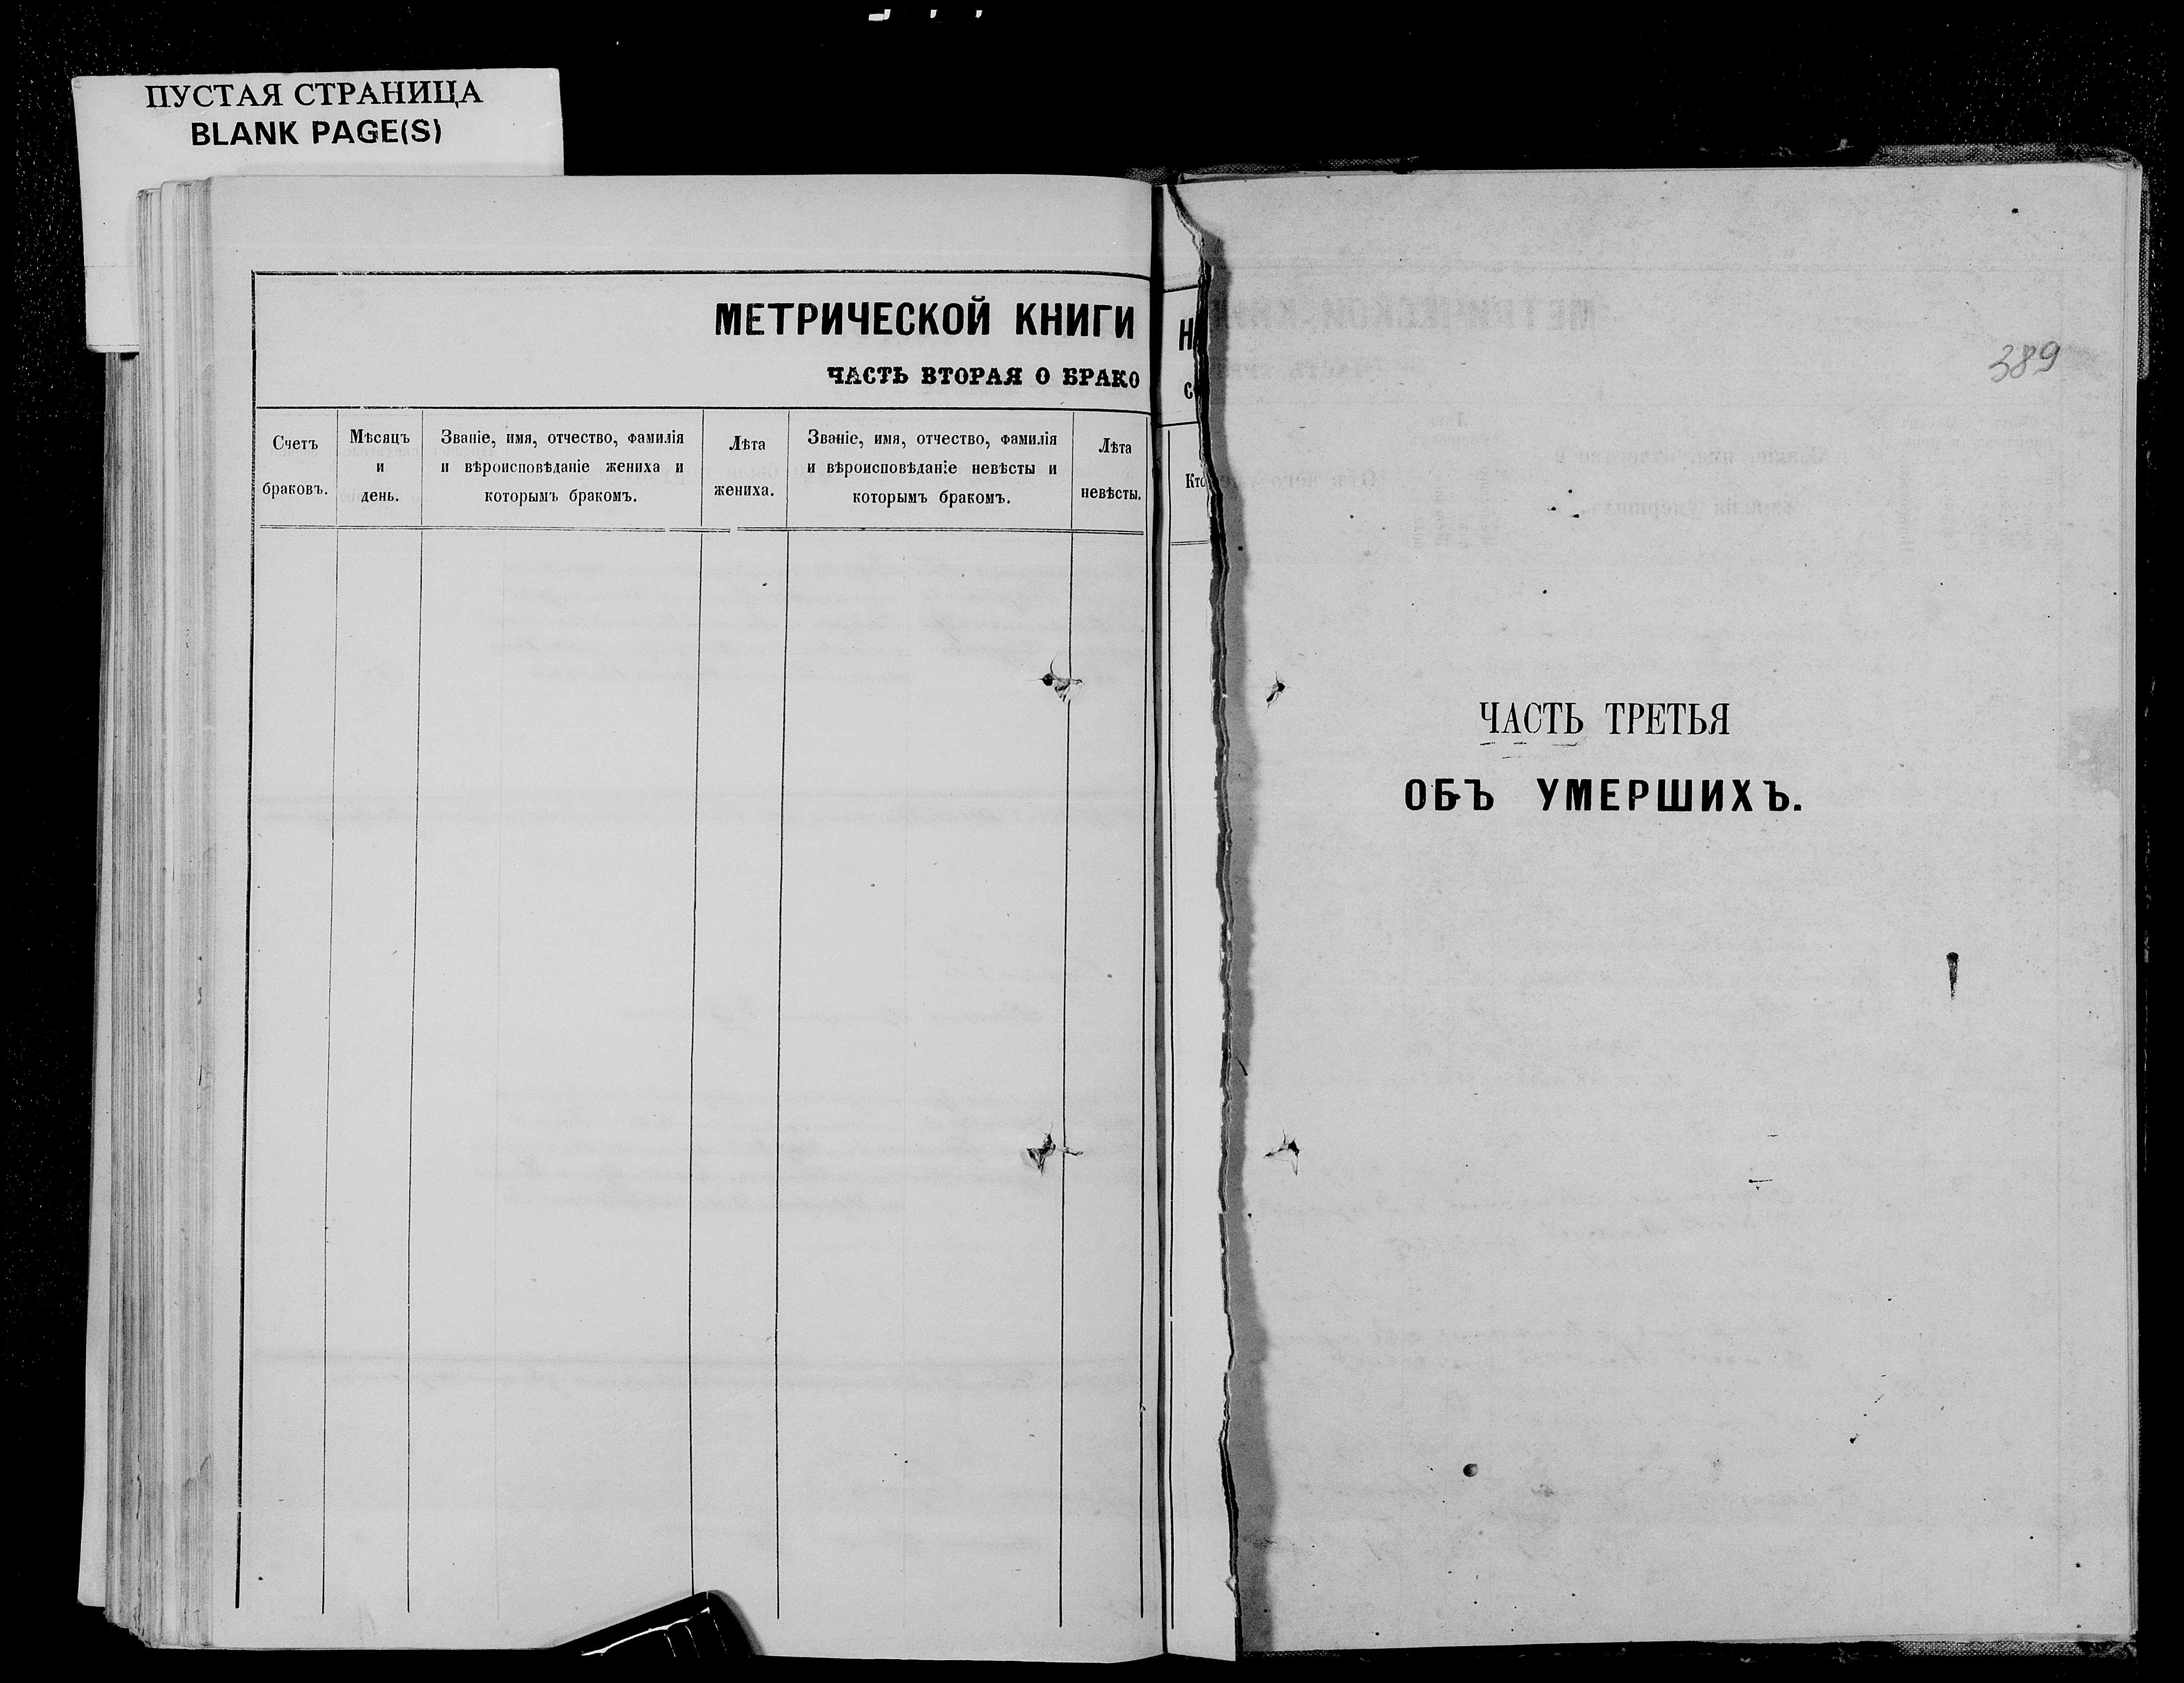 ПУСТАЯ СТРАНИЦА
BLANK PAGE(S)
МЕТРИЧЕСКОЙ КНИГИ
ЧАСТЬ ВТОРАЯ О БРАКО
Счетъ
браковъ.
Мѣсяцъ
и
день.
Званіе, имя, отчество, фамилія
и вѣроисповѣданіе жениха и
которымъ бракомъ.
Лѣта
жениха.
Званіе, имя, отчество, фамилія
и вѣроисповѣданіе невѣсты и
которымъ бракомъ.
Лѣта
невѣсты.
Н
с
Кто
389
ЧАСТЬ ТРЕТЬЯ
ОБЪ УМЕРШИХЪ.